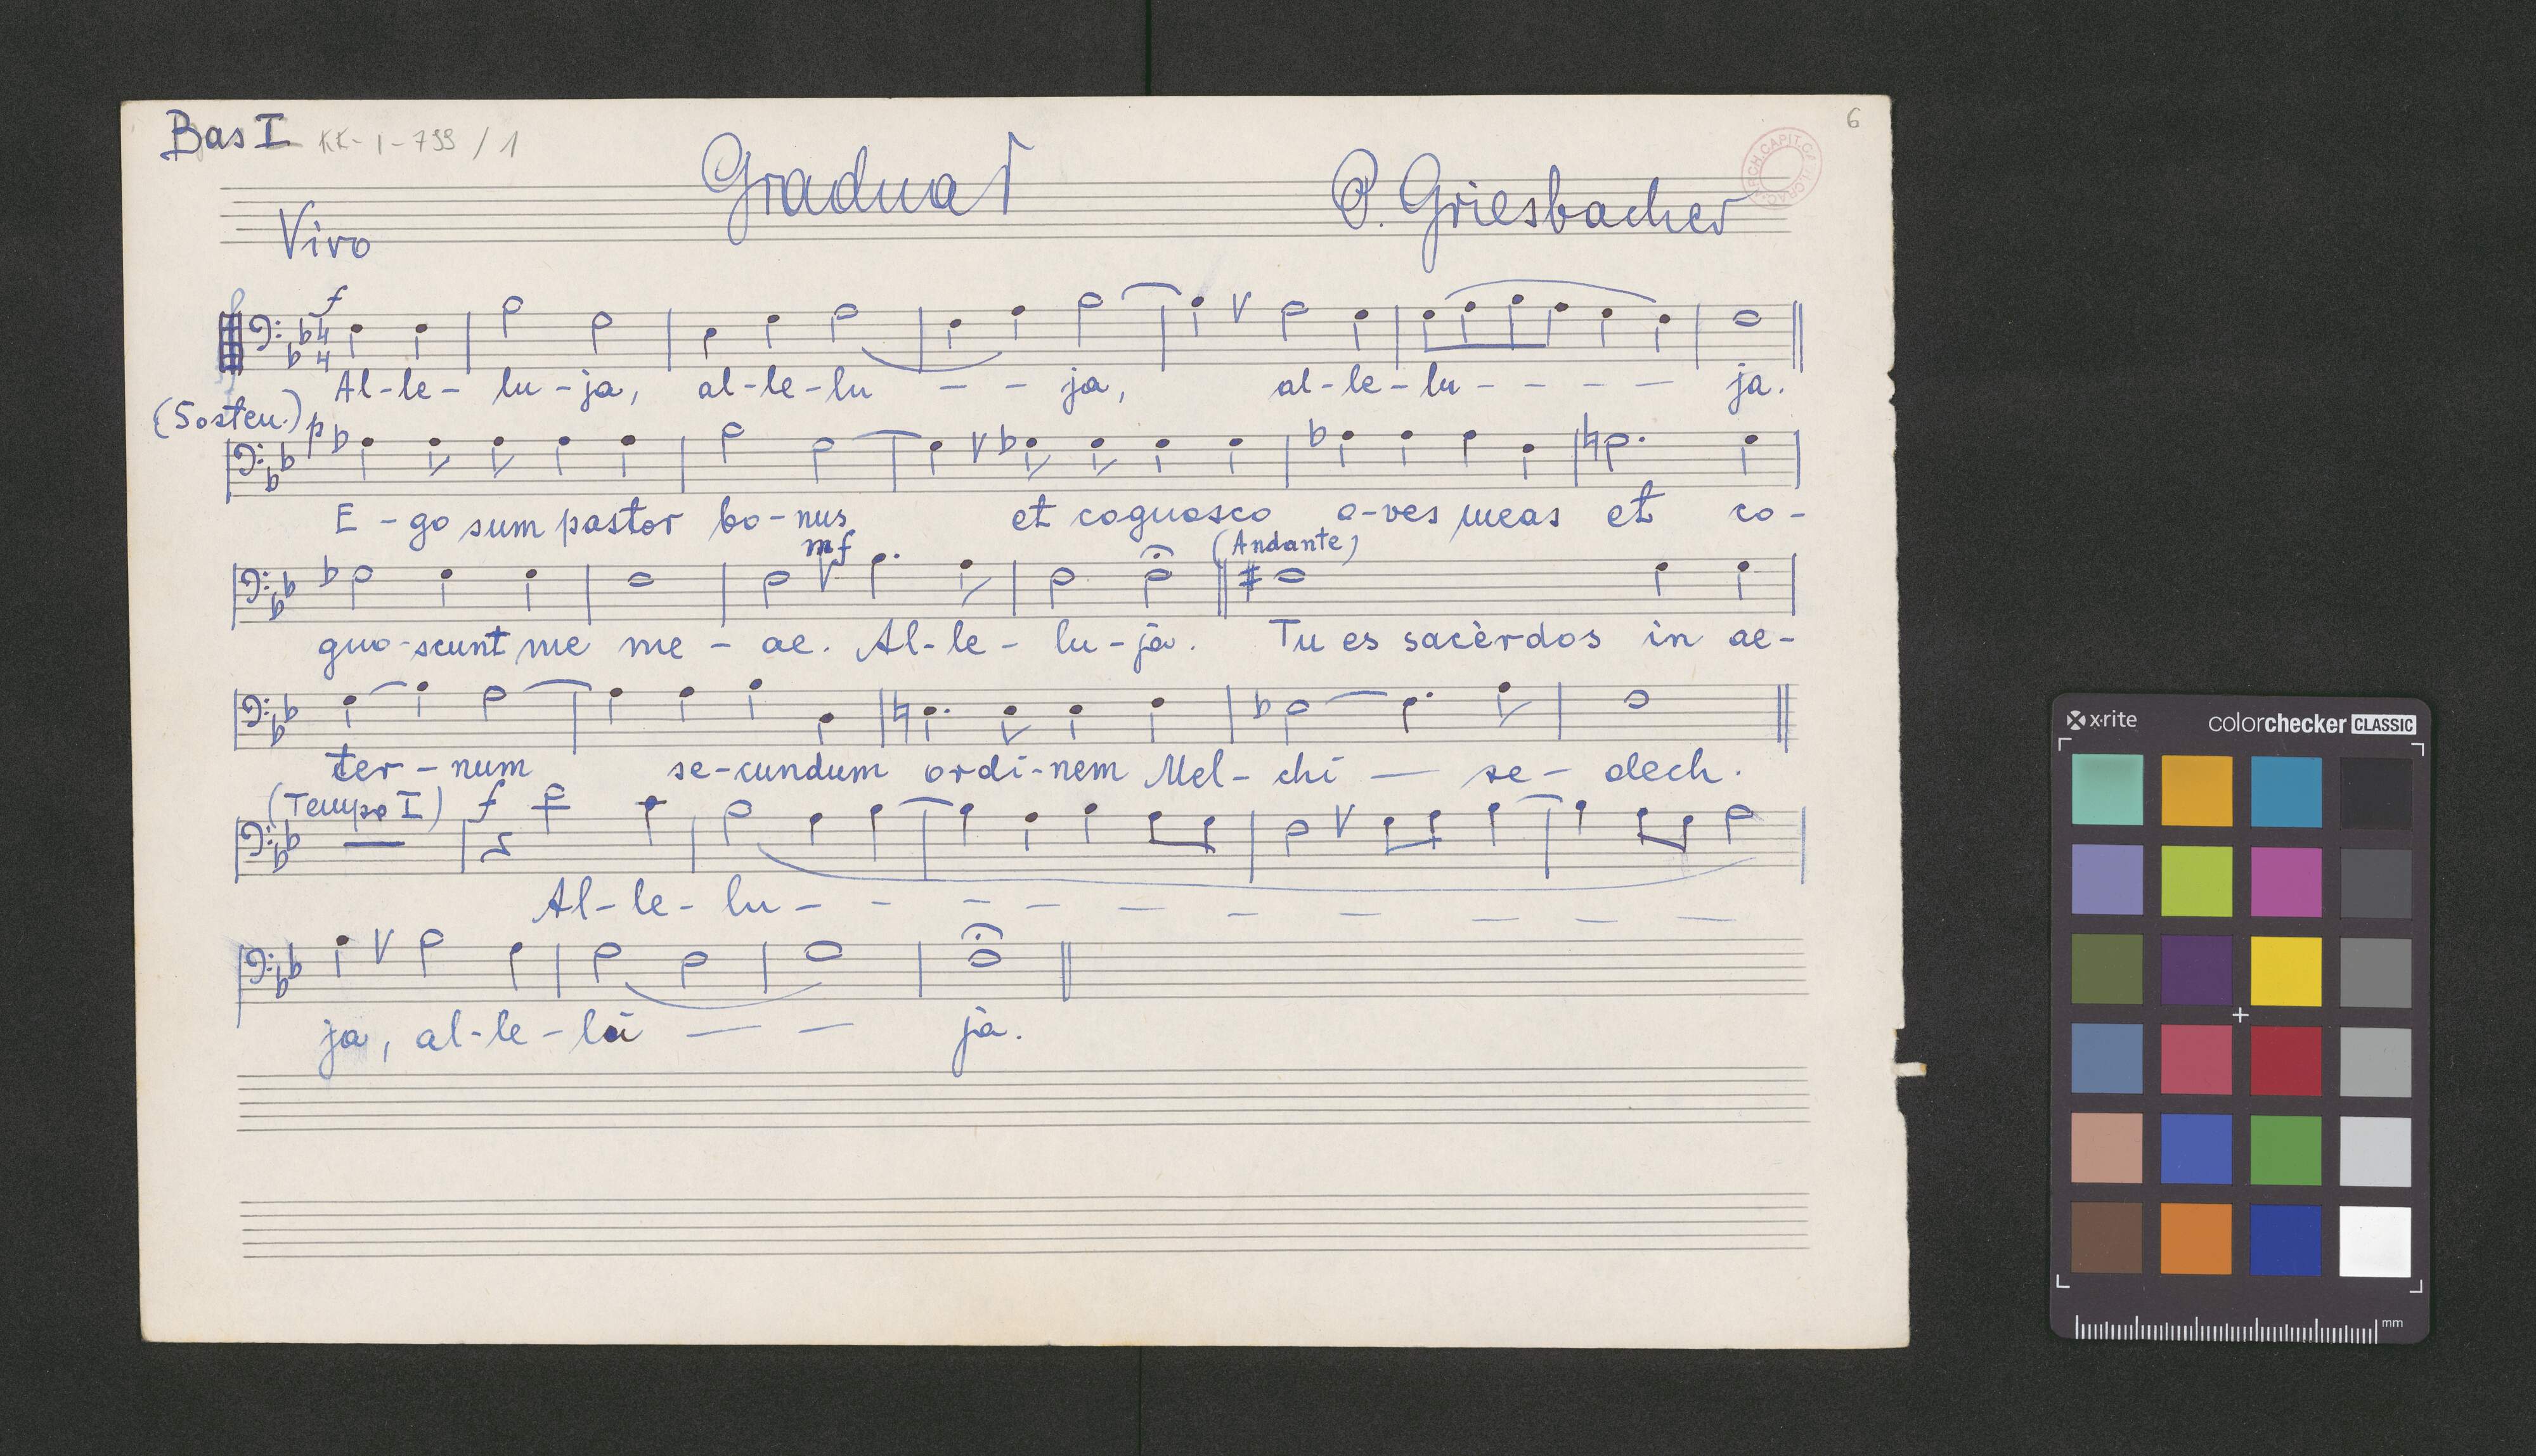 Bas I KK-I-799/1 6
Gradual P. Griesbacher
Vivo
f
4
4
Al-le- lu-ja, al-le-lu - - ja, al-le-lu - - - - ja.
(Sosten.) p
E-go sum pastor bo-nus et cognosco o-ves meas et co-
mf (Andante)
gno-scunt me me - ae. Al-le- lu-ja. Tu es sacèrdos in ae-
ter-num se-cundum ordi-nem Mel-chi - se- dech.
(Tempo I) f
Al-le- lu - - - - - - - - - -
ja, al-le-lu - - ja.
x-rite colorchecker CLASSIC
mm